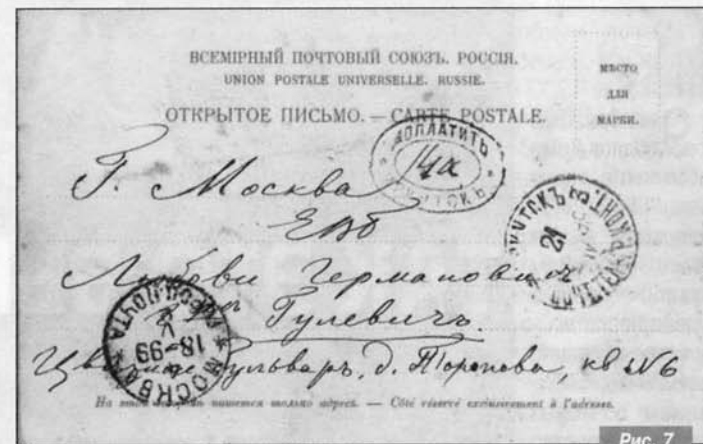 ВСЕМІРНЫЙ ПОЧТОВЫЙ СОЮЗЪ. РОССІЯ.
UNION POSTALE UNIVERSELLE. RUSSIE.
ОТКРЫТОЕ ПИСЬМО. — CARTE POSTALE.
МѢСТО
ДЛЯ
МАРКИ.
ДОПЛАТИТЬ
Г. Москва
ЕВб
Любови Германовнѣ
Гулевичъ
бульваръ, д. Торопова, кв №6
МОСКВА
ПОЧТА
18-99
На этой сторонѣ пишется только адресъ. — Côté réservé exclusivement à l'adresse.
Рис. 7